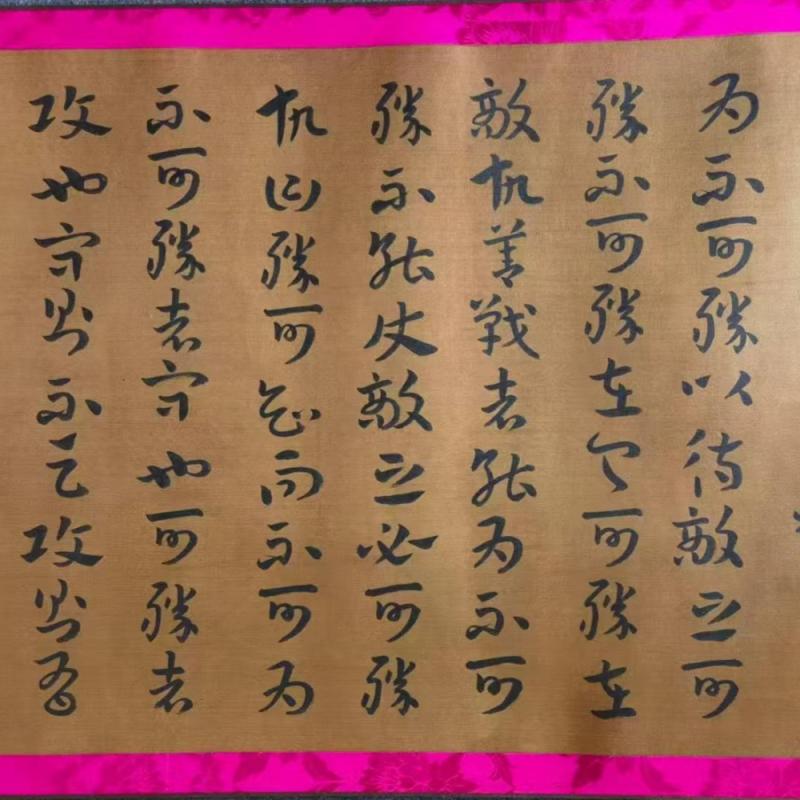 為不可勝以待敵之可
勝不可勝在己可勝在
敵故善戰者能為不可
勝不能使敵之必可勝
故曰勝可知而不可為
不可勝者守也可勝者
攻也守則不足攻則有